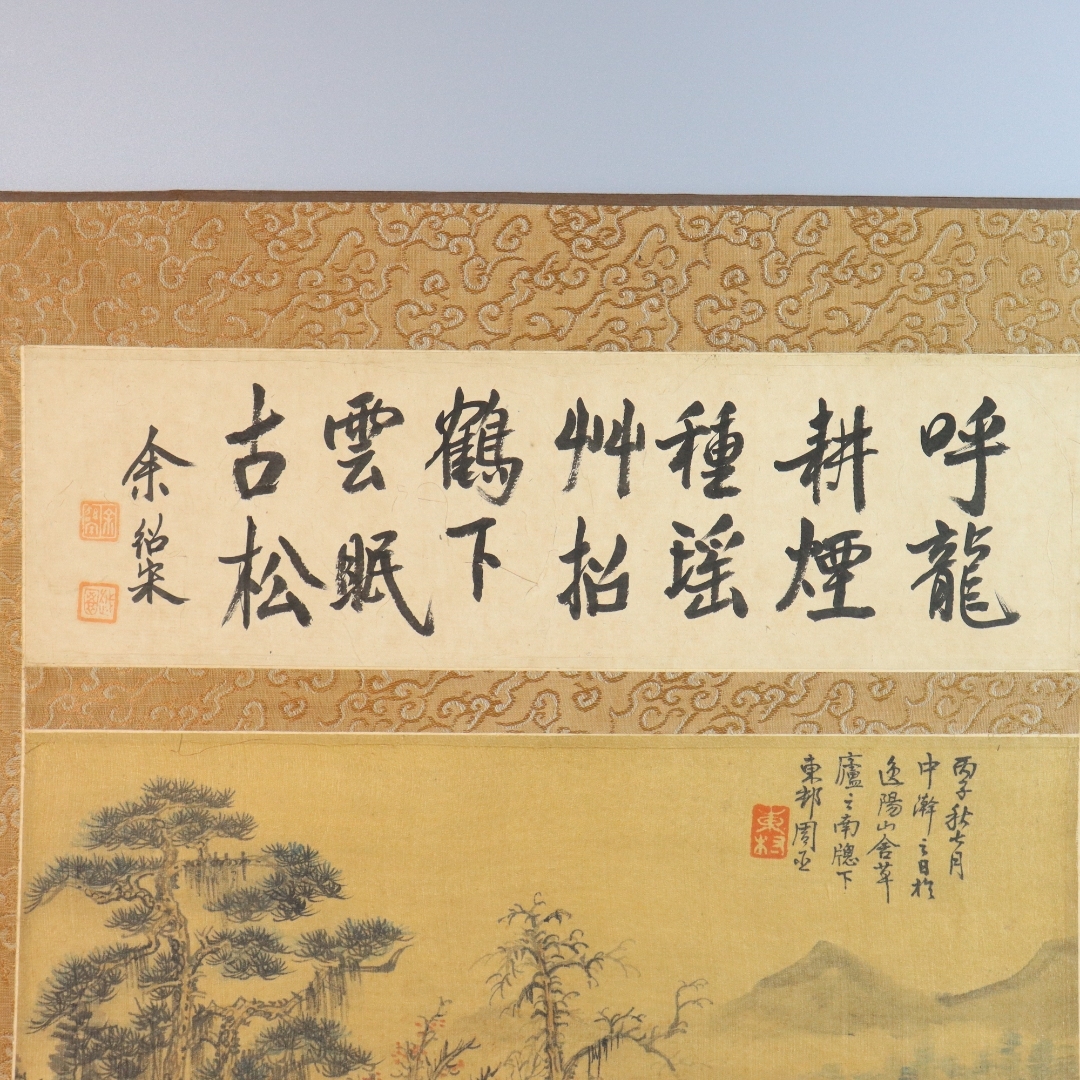 呼龍
耕煙
種瑶
艸招
鶴下
雲眠
古松
余紹宋
丙子秋七月
中澣之日於
逸陽山舍草
廬之南牕下
東邨周臣
東村